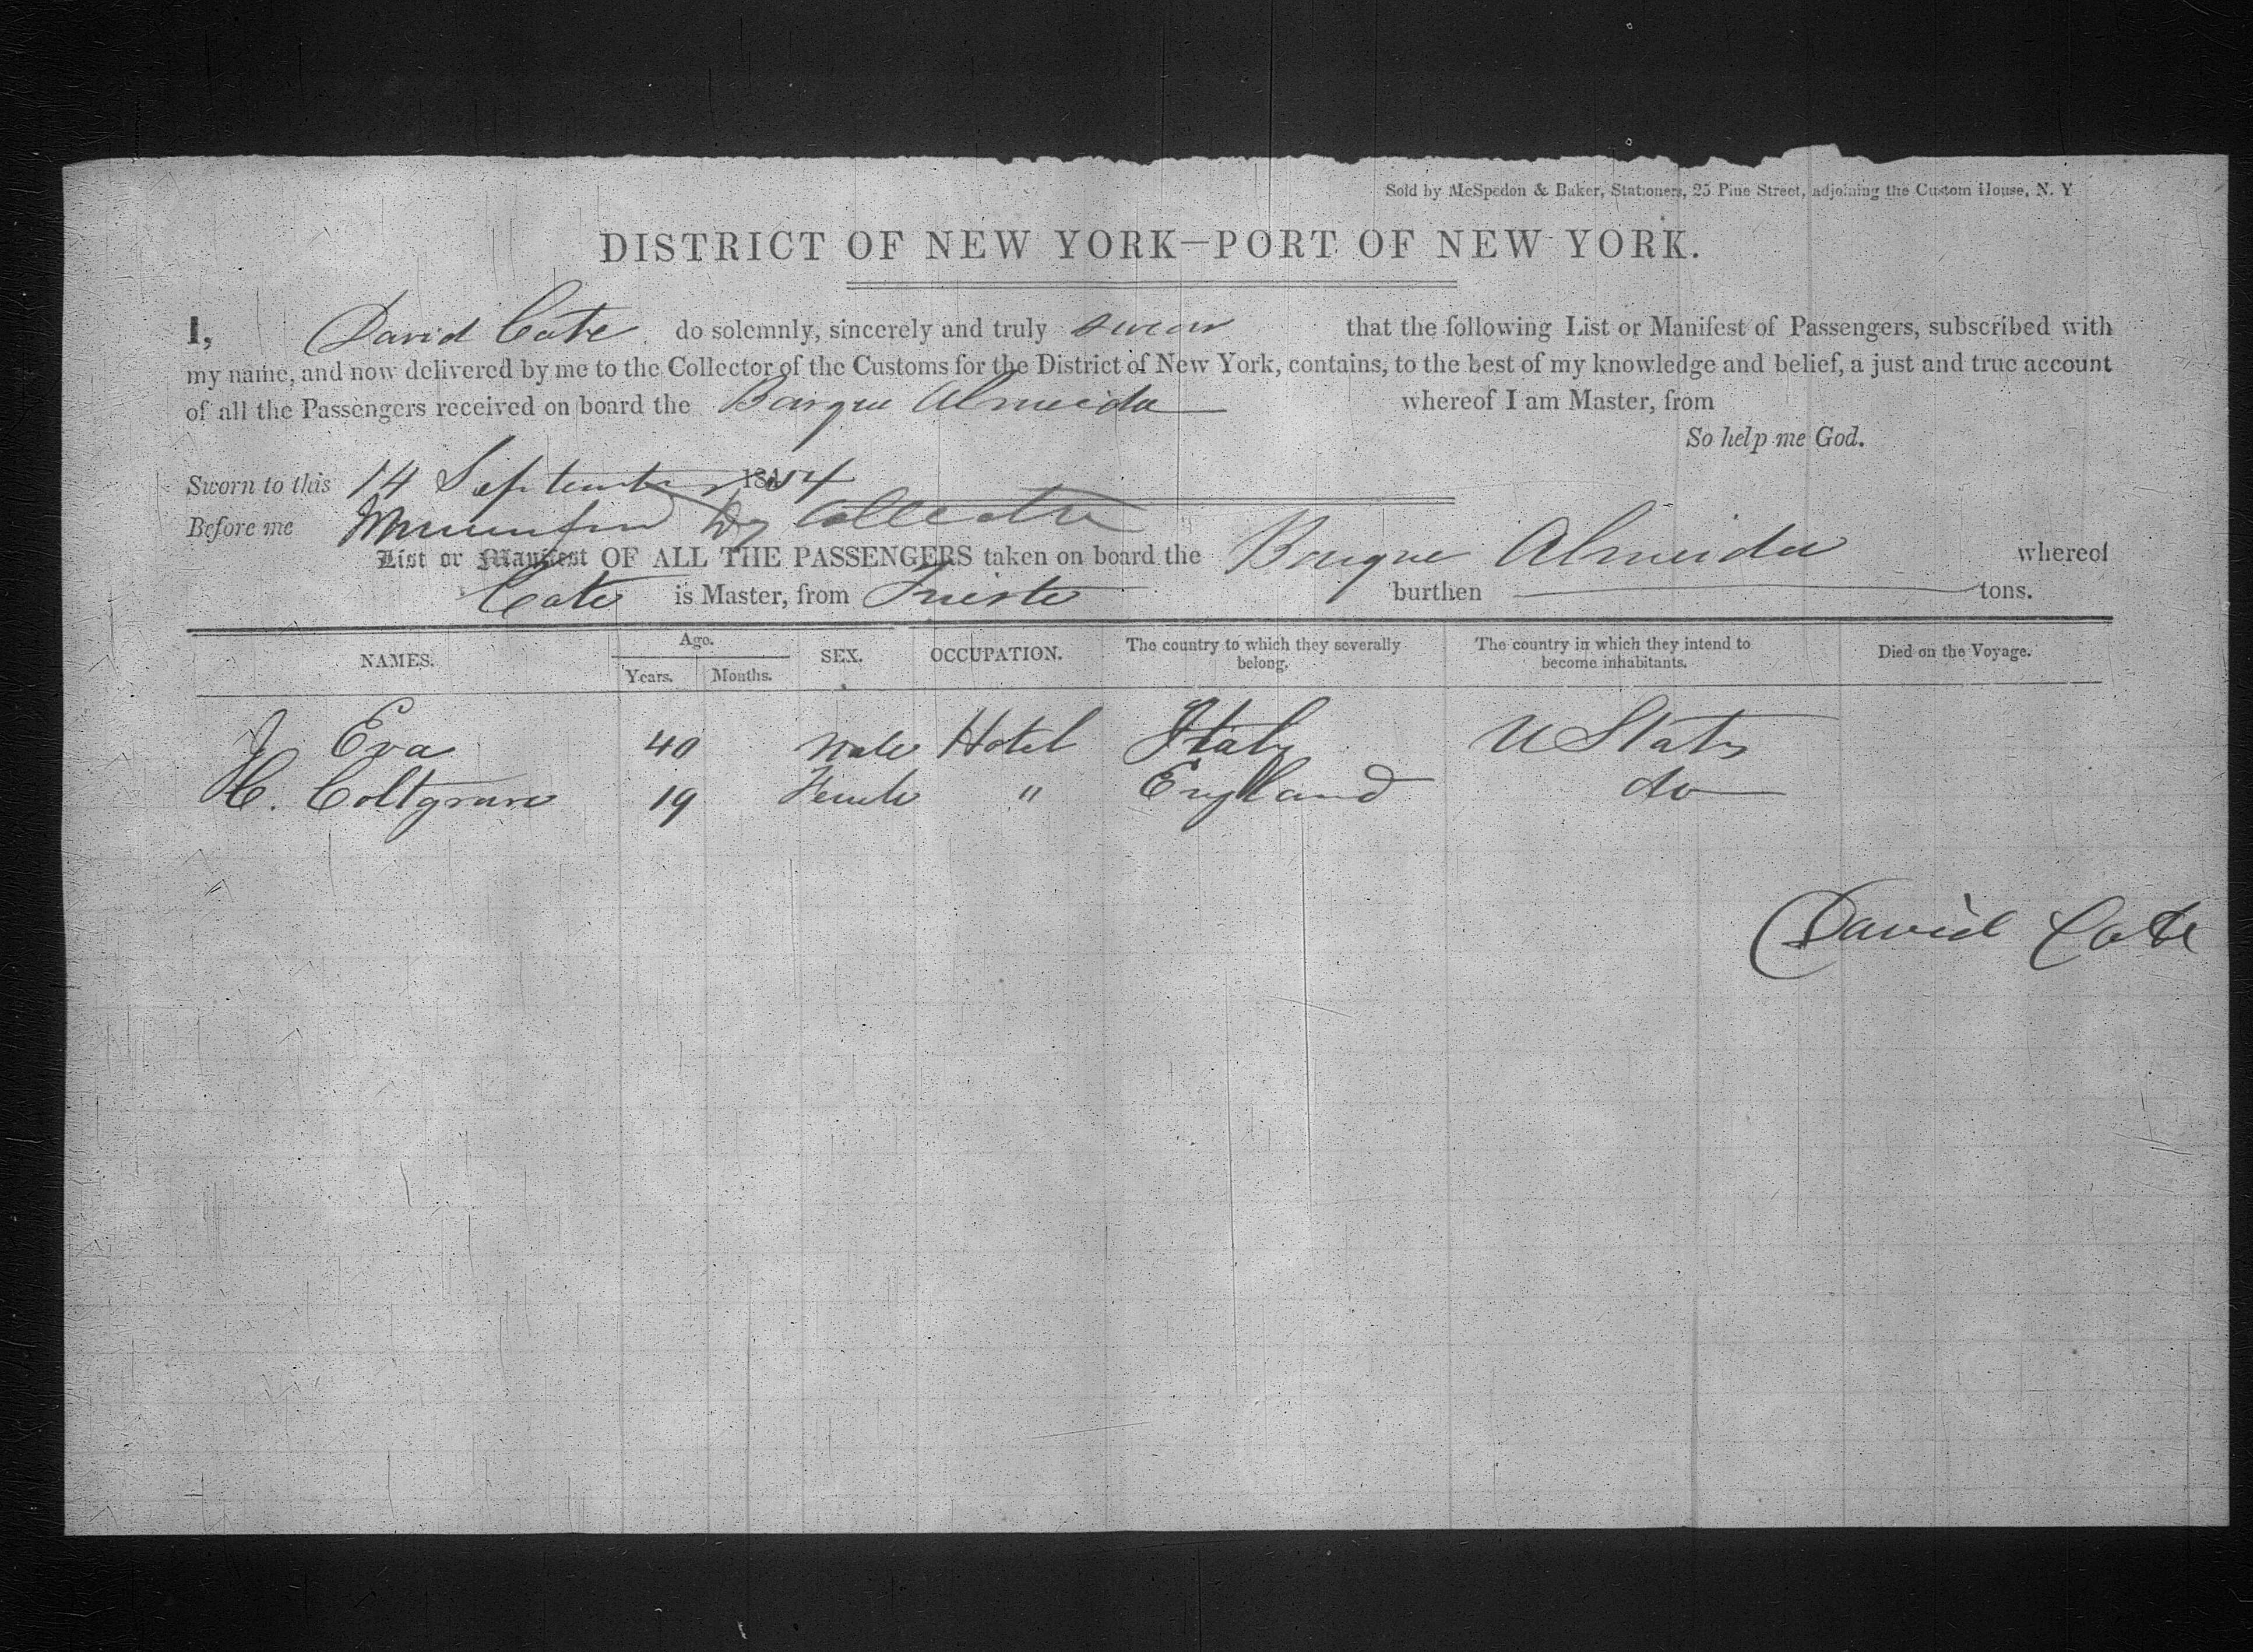 Sold by McSpedon & Baker, Stationers, 25 Pine Street, adjoining the Custom House, N. Y
DISTRICT OF NEW YORK—PORT OF NEW YORK.
I, David Cate do solemnly, sincerely and truly swear that the following List or Manifest of Passengers, subscribed with
my name, and now delivered by me to the Collector of the Customs for the District of New York, contains, to the best of my knowledge and belief, a just and true account
of all the Passengers received on board the Barque Almeida whereof I am Master, from
So help me God.
Sworn to this 14 September 1854
Before me Dy Collector
List or Manifest OF ALL THE PASSENGERS taken on board the Barque Almeida whereof
Cate is Master, from Trieste burthen tons.
NAMES. Age. Years. Months. SEX. OCCUPATION. The country to which they severally belong. The country in which they intend to become inhabitants. Died on the Voyage.
J Eva 40 Male Hotel Italy U States
C. Coltgrave 19 Female " England do
David Cate